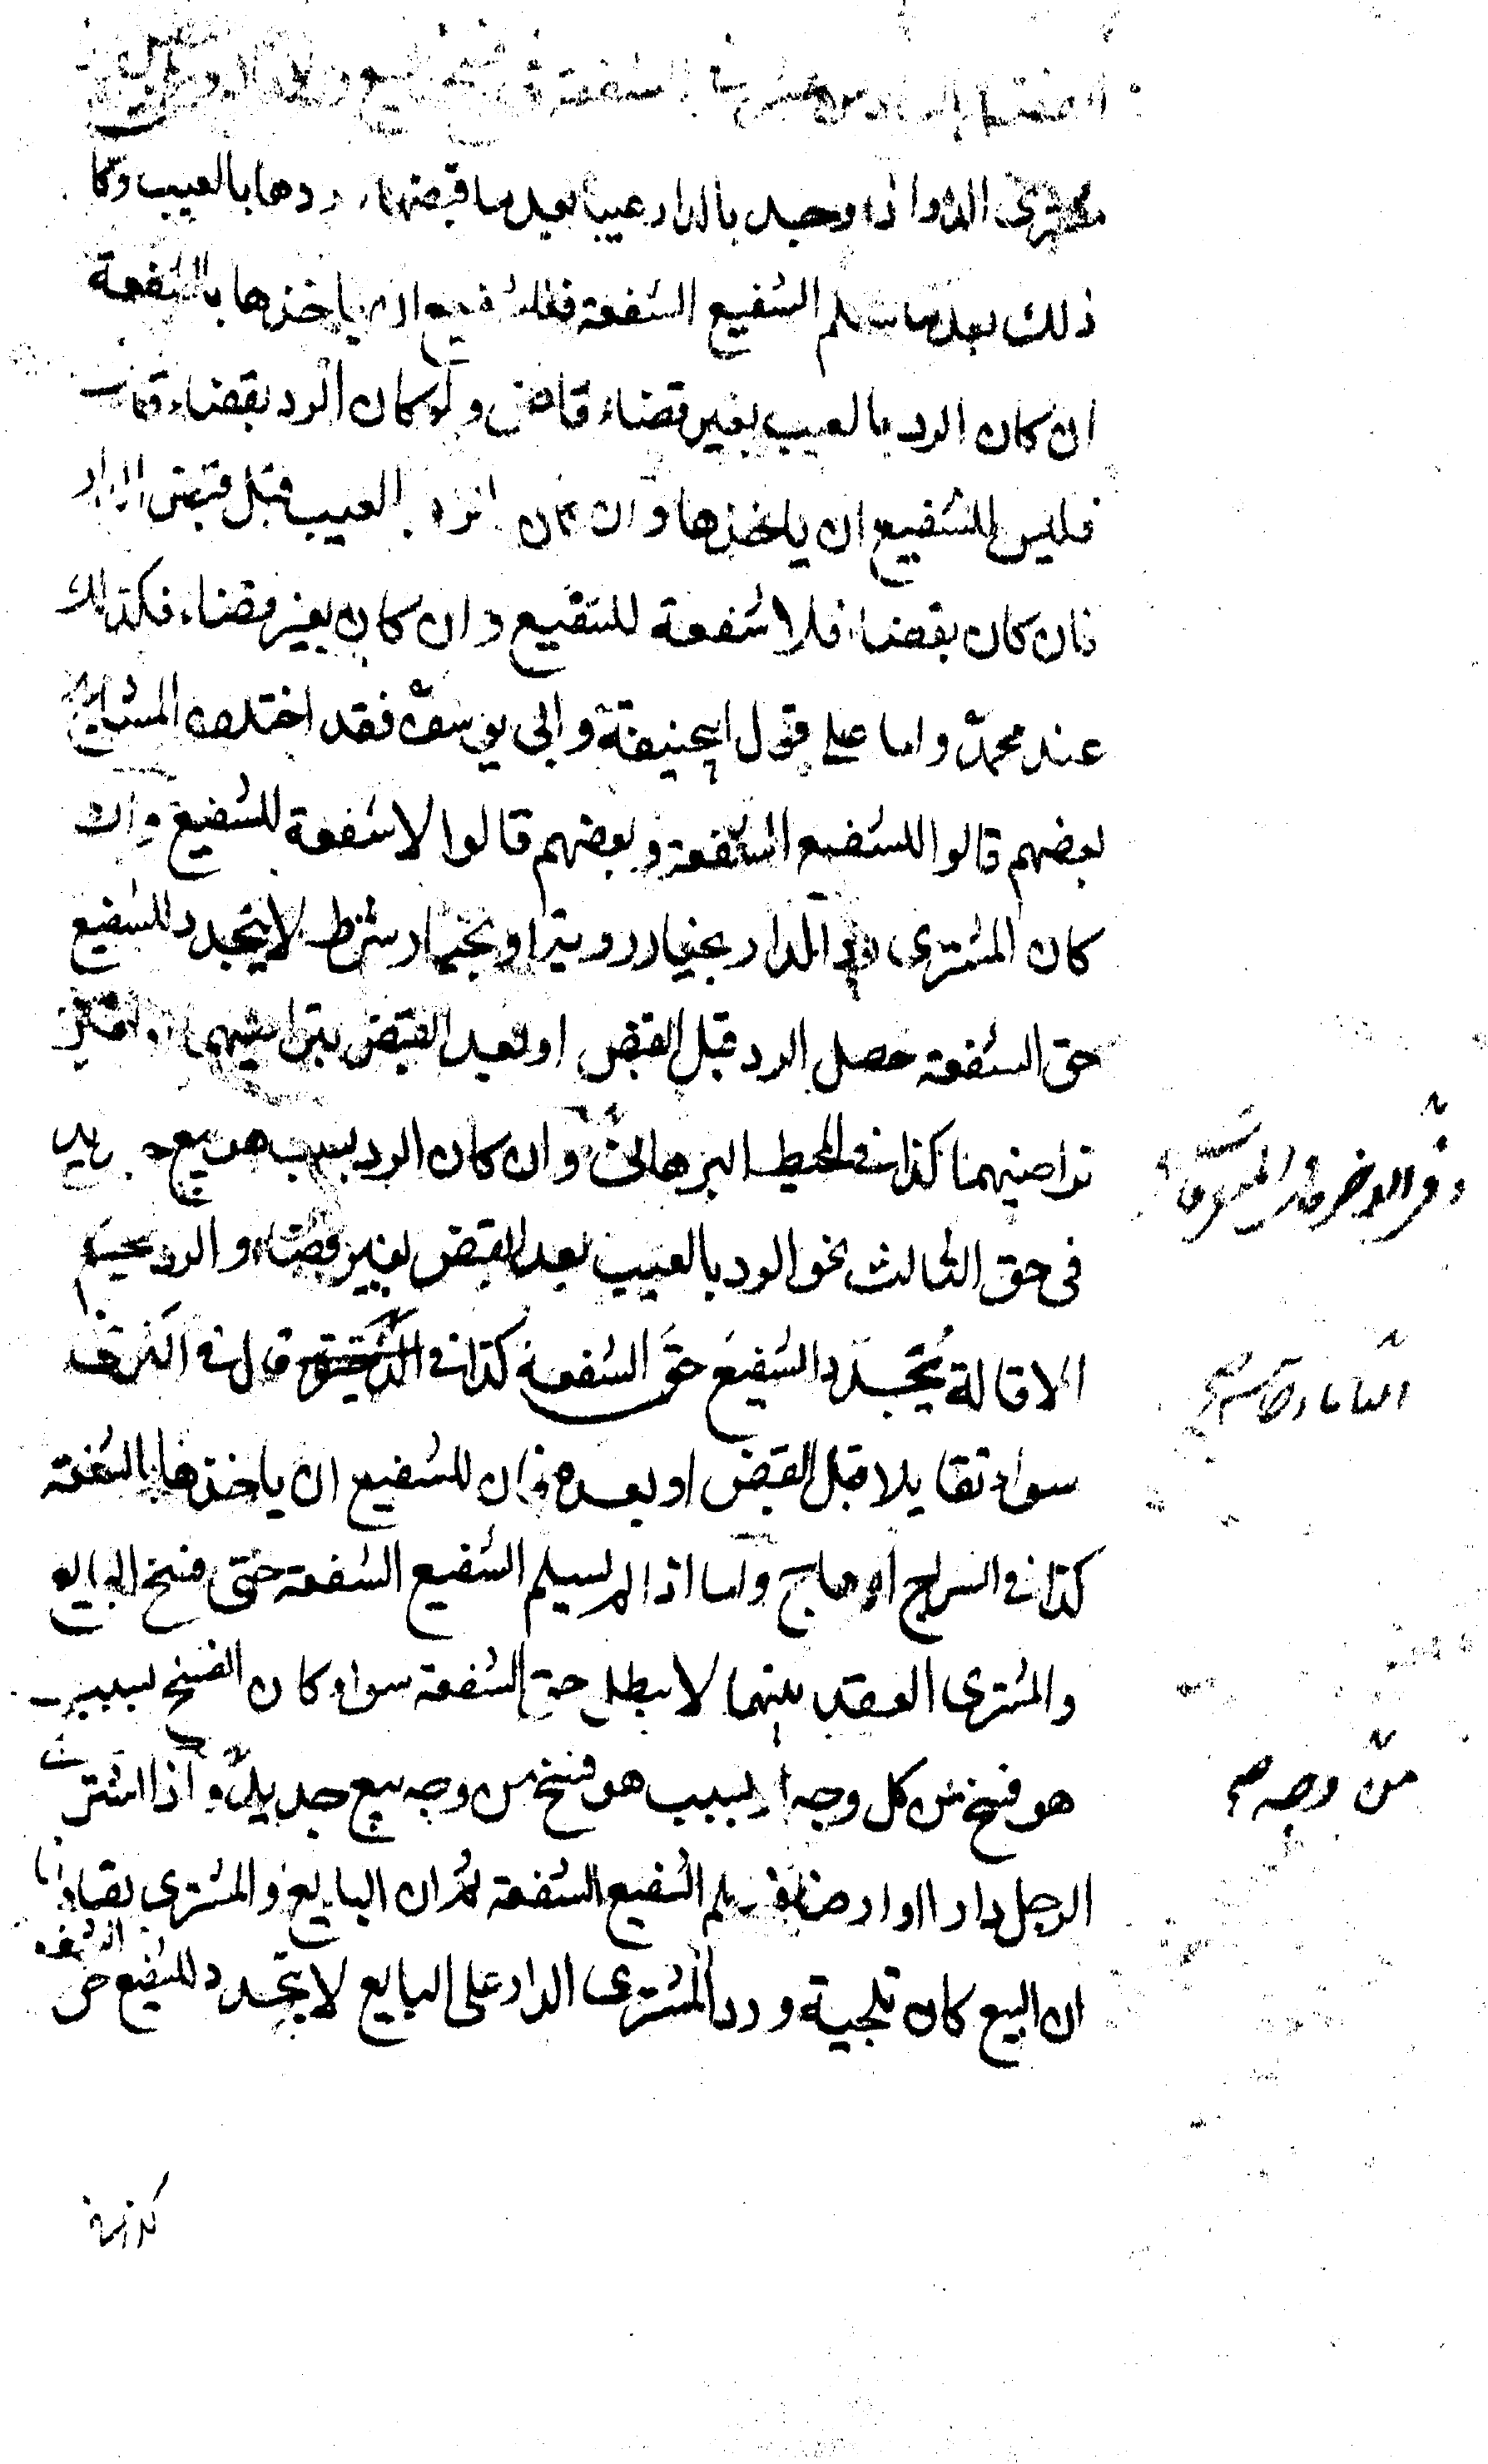 الشفعة في فسخ البيع
مشتري الدار اذا وجد بالدار عيبا بعد ما قبضها ردها بالعيب وكا
ذلك بعد ما سلم الشفيع الشفعة فللشفيع ان ياخذها بالشفعة
ان كان الرد بالعيب بغير قضاء قاض ولو كان الرد بقضاء قاض
فليس للشفيع ان ياخذها وان كان الرد بالعيب قبل قبض الدار
فان كان بقضاء فلا شفعة للشفيع وان كان بغير قضاء فكذلك
عند محمد واما على قول ابيحنيفة وابي يوسف فقد اختلف المشايخ
بعضهم قالوا للشفيع الشفعة وبعضهم قالوا لا شفعة للشفيع وان
كان المشترى رد الدار بخيار روية او بخيار شرط لا يتجدد للشفيع
حق الشفعة حصل الرد قبل القبض او بعد القبض بتراضيهما او بغير
تراضيهما كذا في المحيط البرهاني وان كان الرد بسبب هو بيع جديد
في حق الثالث نحو الرد بالعيب بعد القبض بغير قضاء والرد بحكم
الاقالة يتجدد للشفيع حق الشفعة كذا في الذخيرة قال في
سواء تقايلا قبل القبض او بعده فان للشفيع ان ياخذها بالشفعة
كذا في السراج الوهاج واما اذا لم يسلم الشفيع الشفعة حتى فسخ البايع
والمشترى العقد بينهما لا يبطل حق الشفعة سواء كان الفسخ بسبب
هو فسخ من كل وجه او بسبب هو فسخ من وجه بيع جديد واذا اشترى
من وجه صح
الرجل دارا او ارضا فسلم الشفيع الشفعة ثم ان البايع والمشترى تصادقا
ان البيع كان تلجية ورد المشترى الدار على البايع لا يتجدد للشفيع حق الشفعة